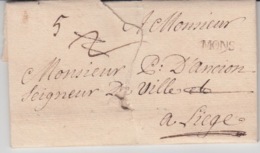 5 A Monsieur
MONS
Monsieur P: D'ancion
Seigneur De Ville &
a Liege